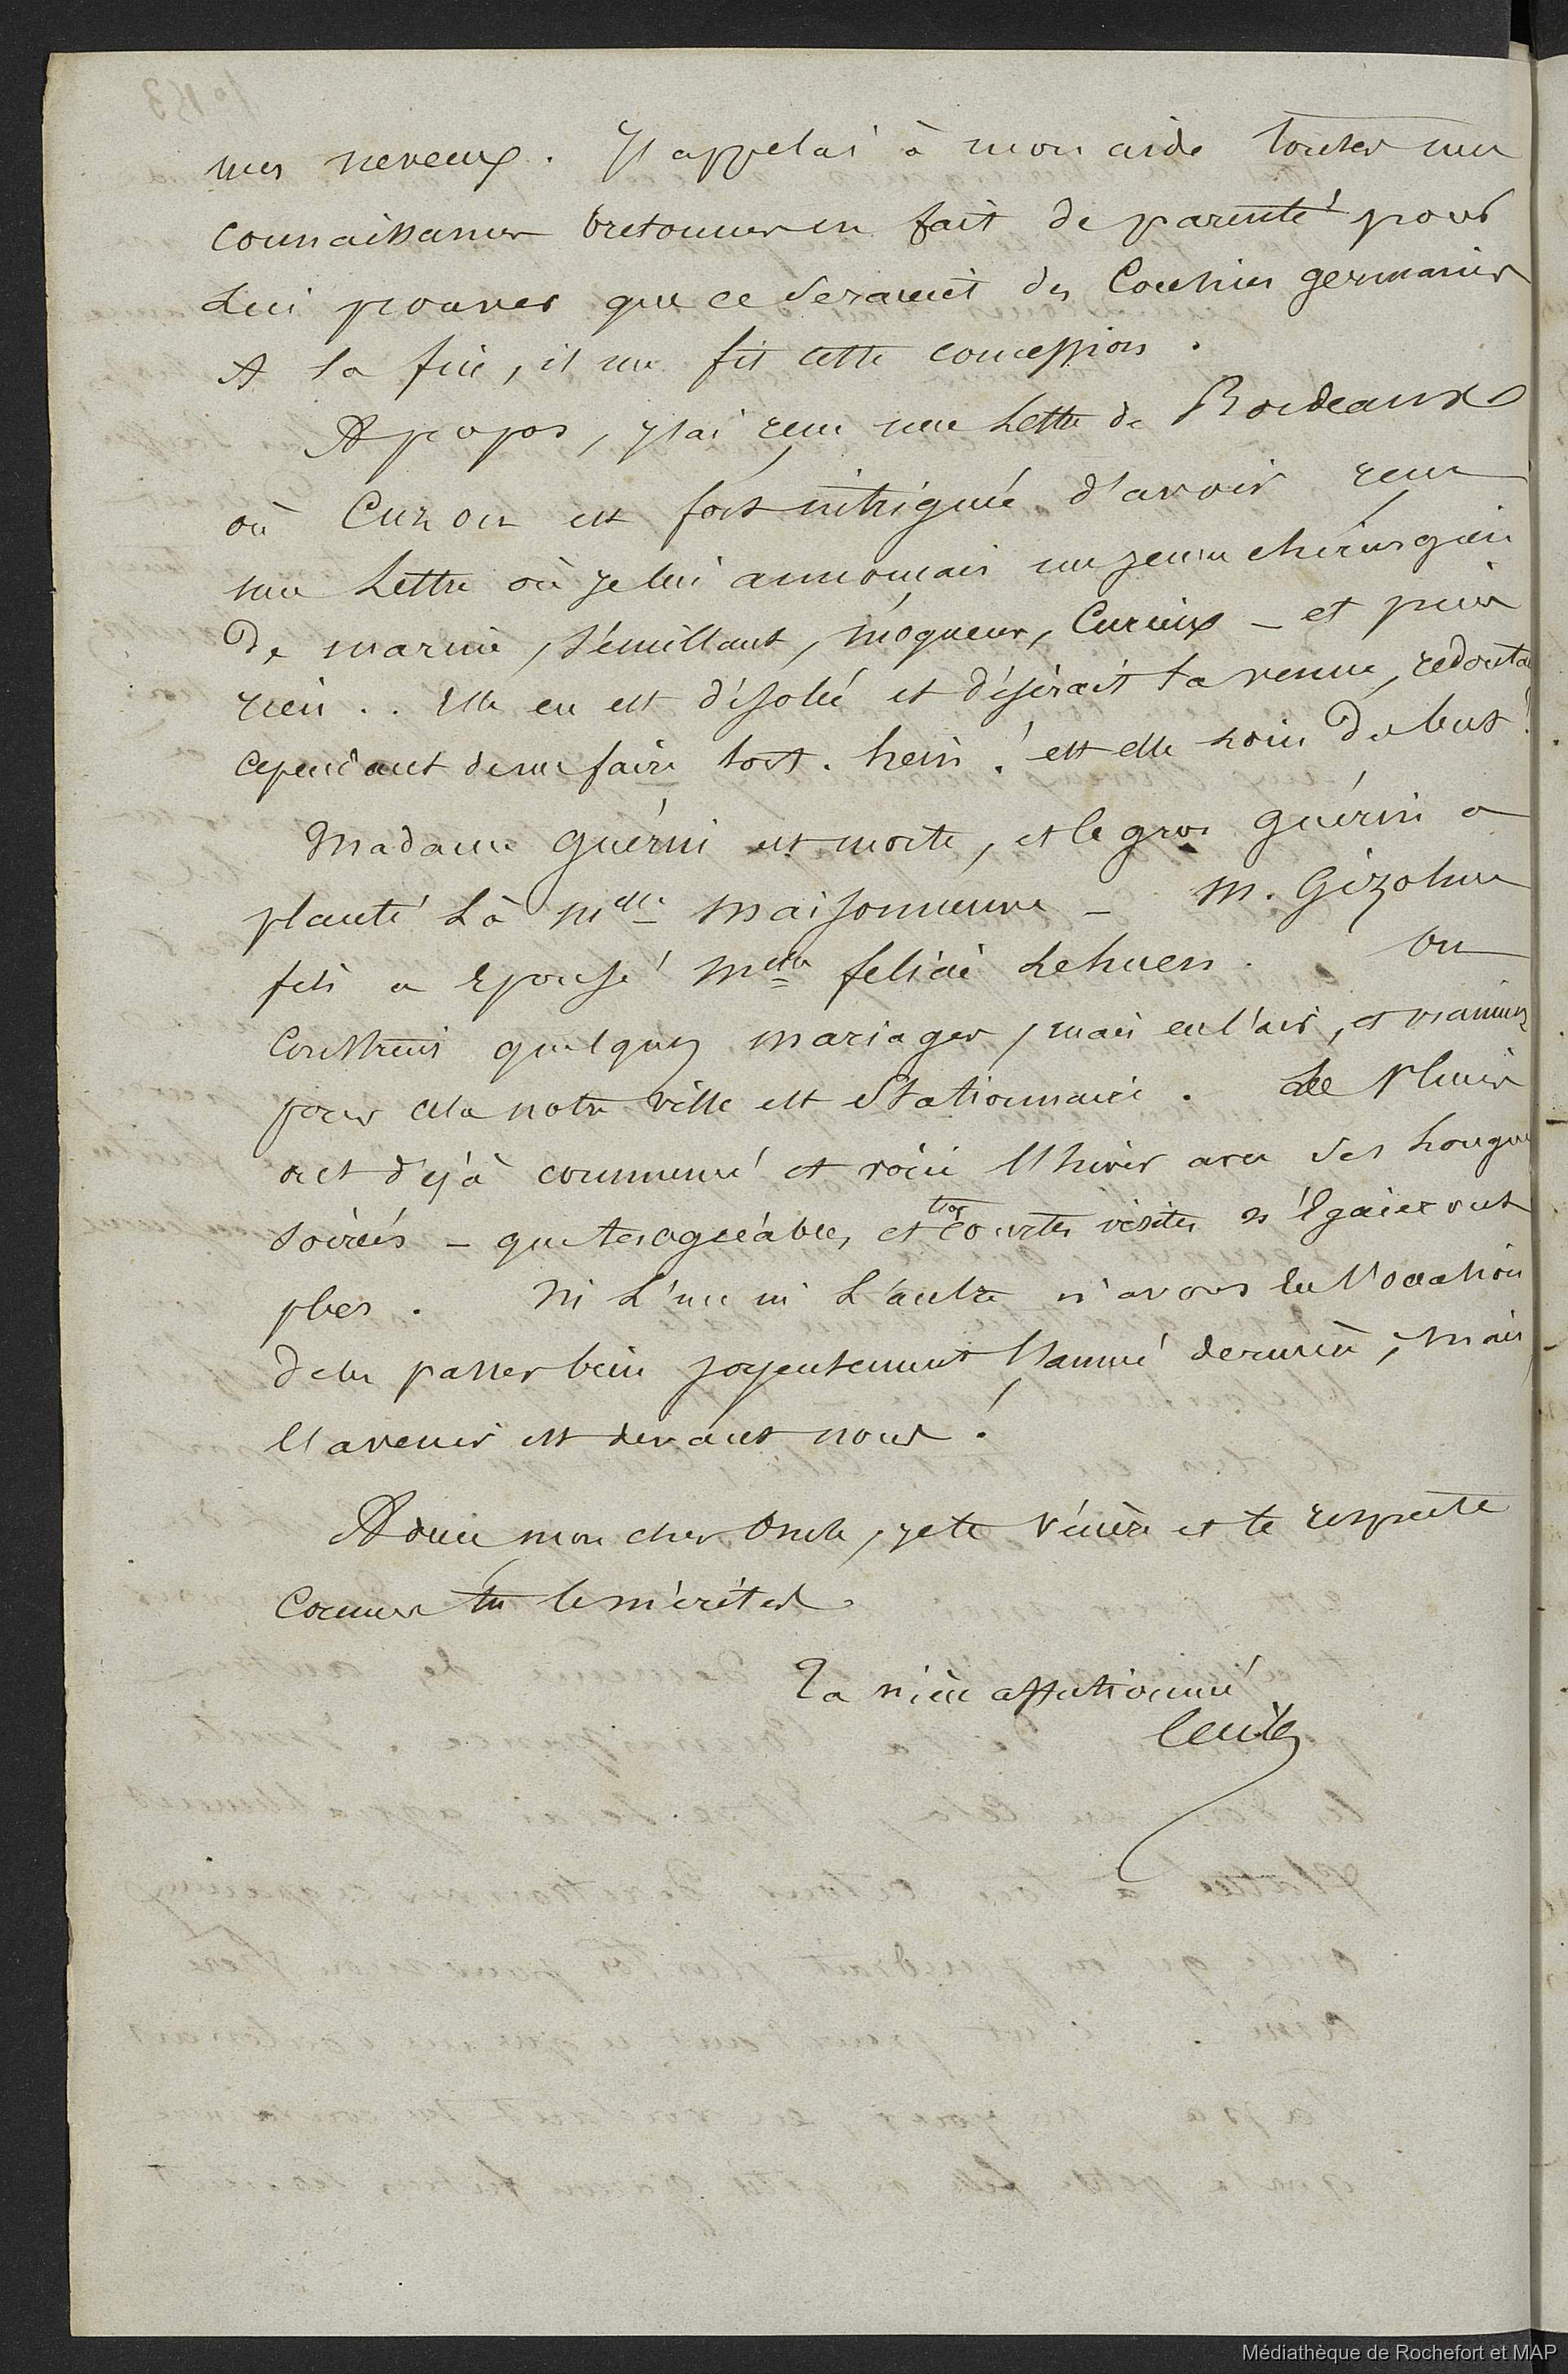 mes neveux. J'appelai à mon aide toutes mes
connaissances bretonnes en fait de parenté pour
Lui prouver que ce seraient des Cousins germains
A la fin, il me fit cette concession.
A propos, j'ai reçu une Lettre de Bordeaux
où est fort intriguée d'avoir reçu
une Lettre où je lui annonçais un jeune chirurgien
De marine, sémillant, moqueur, Curieux – et puis
rien .. Elle en est désolée et désirait ta venue, redouta
cependant de me faire tort. hein! est elle loin du but!
Madame Guérin est morte, et le gros Guérin a
planté Là Melle Maisonneuve – M. Gizolme
fils a Epousé Melle Félicie Lehuen. On
Construit quelques mariages, mais en l'air, et vraiment
pour cela notre ville est Stationnaire. Les pluies
ont déjà commencé et voici l'hiver avec ses longues
soirées – que tes agréables, et trop courtes visites n'égaieront
plus. Ni L'un ni L'autre n'avons eu l'occasion
de les passer bien joyeusement l'année dernière, mais
l'avenir est devant nous!
Adieu mon cher Oncle, je te vénère et te respecte
Comme tu le mérites
Ta nièce affectionnée
Médiathèque de Rochefort et MAP